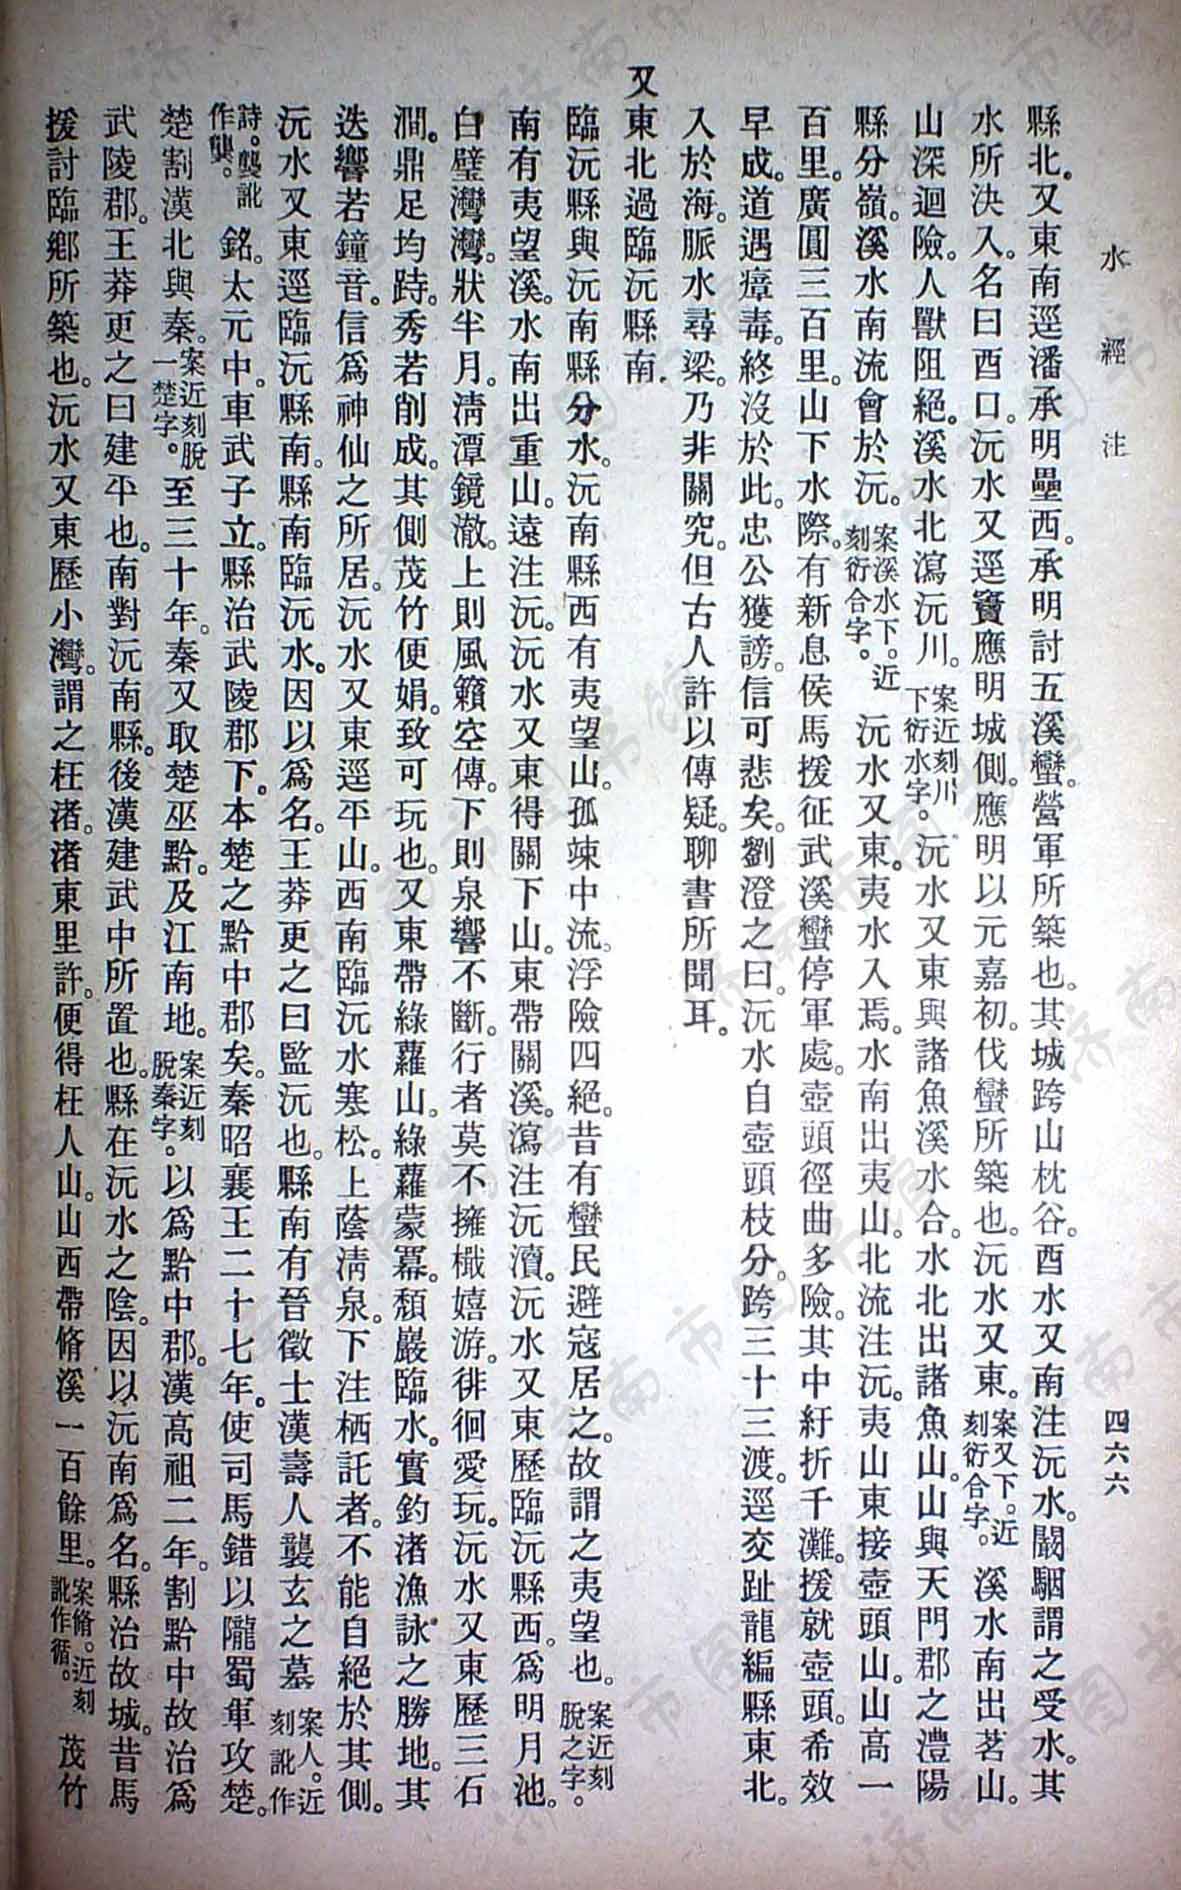 水經注
四六六
縣北。又東南逕潘承明壘西。承明討五溪蠻。營軍所築也。其城跨山枕谷。酉水又南注沅水。闞駰謂之受水。其
水所決入。名曰酉口。沅水又逕竇應明城側。應明以元嘉初。伐蠻所築也。沅水又東。案又下。近刻衍合字。溪水南出茗山。
山深迴險。人獸阻絕。溪水北瀉沅川。案近刻川下衍水字。沅水又東與諸魚溪水合。水北出諸魚山。山與天門郡之澧陽
縣分嶺。溪水南流會於沅。案溪水下。近刻衍合字。沅水又東。夷水入焉。水南出夷山。北流注沅。夷山東接壺頭山。山高一
百里。廣圓三百里。山下水際。有新息侯馬援征武溪蠻停軍處。壺頭徑曲多險。其中紆折千灘。援就壺頭。希效
早成。道遇瘴毒。終沒於此。忠公獲謗。信可悲矣。劉澄之曰。沅水自壺頭枝分。跨三十三渡。逕交趾龍編縣東北。
入於海。脈水尋梁。乃非關究。但古人許以傳疑。聊書所聞耳。
又東北過臨沅縣南。
臨沅縣與沅南縣分水。沅南縣西有夷望山。孤竦中流。浮險四絕。昔有蠻民避寇居之。故謂之夷望也。案近刻脫之字。
南有夷望溪。水南出重山。遠注沅。沅水又東得關下山。東帶關溪。瀉注沅瀆。沅水又東歷臨沅縣西。爲明月池。
白璧灣。灣狀半月。清潭鏡澈。上則風籟空傳。下則泉響不斷。行者莫不擁檝嬉游。徘徊愛玩。沅水又東歷三石
澗。鼎足均跱。秀若削成。其側茂竹便娟。致可玩也。又東帶綠蘿山。綠蘿蒙冪。頹巖臨水。實釣渚漁詠之勝地。其
迭響若鐘音。信爲神仙之所居。沅水又東逕平山。西南臨沅水寒松。上蔭清泉。下注栖託者。不能自絕於其側。
沅水又東逕臨沅縣南。縣南臨沅水。因以爲名。王莽更之曰監沅也。縣南有晉徵士漢壽人襲玄之墓案人。近刻訛作
詩。襲訛作龔。銘。太元中。車武子立。縣治武陵郡下。本楚之黔中郡矣。秦昭襄王二十七年。使司馬錯以隴蜀軍攻楚。
楚割漢北與秦。案近刻脫一楚字。至三十年。秦又取楚巫黔。及江南地。案近刻脫秦字。以爲黔中郡。漢高祖二年。割黔中故治爲
武陵郡。王莽更之曰建平也。南對沅南縣。後漢建武中所置也。縣在沅水之陰。因以沅南爲名。縣治故城。昔馬
援討臨鄉所築也。沅水又東歷小灣。謂之枉渚。渚東里許。便得枉人山。山西帶脩溪一百餘里。案脩。近刻訛作循。茂竹